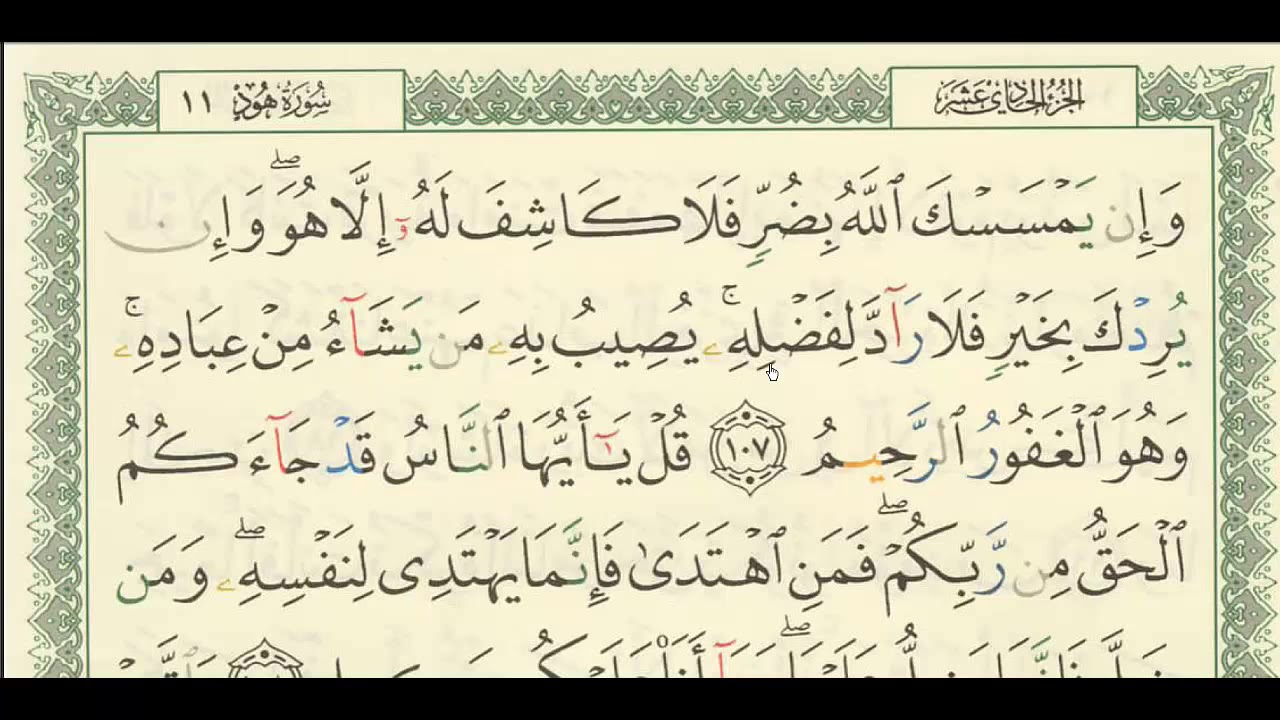 الجزء الحادي عشر
سورة هود ١١
وَإِن يَمْسَسْكَ ٱللَّهُ بِضُرٍّ فَلَا كَاشِفَ لَهُۥٓ إِلَّا هُوَ ۖ وَإِن
يُرِدْكَ بِخَيْرٍ فَلَا رَآدَّ لِفَضْلِهِۦ ۚ يُصِيبُ بِهِۦ مَن يَشَآءُ مِنْ عِبَادِهِۦ ۚ
وَهُوَ ٱلْغَفُورُ ٱلرَّحِيمُ ١٠٧ قُلْ يَـٰٓأَيُّهَا ٱلنَّاسُ قَدْ جَآءَكُمُ
ٱلْحَقُّ مِن رَّبِّكُمْ ۖ فَمَنِ ٱهْتَدَىٰ فَإِنَّمَا يَهْتَدِى لِنَفْسِهِۦ ۖ وَمَن